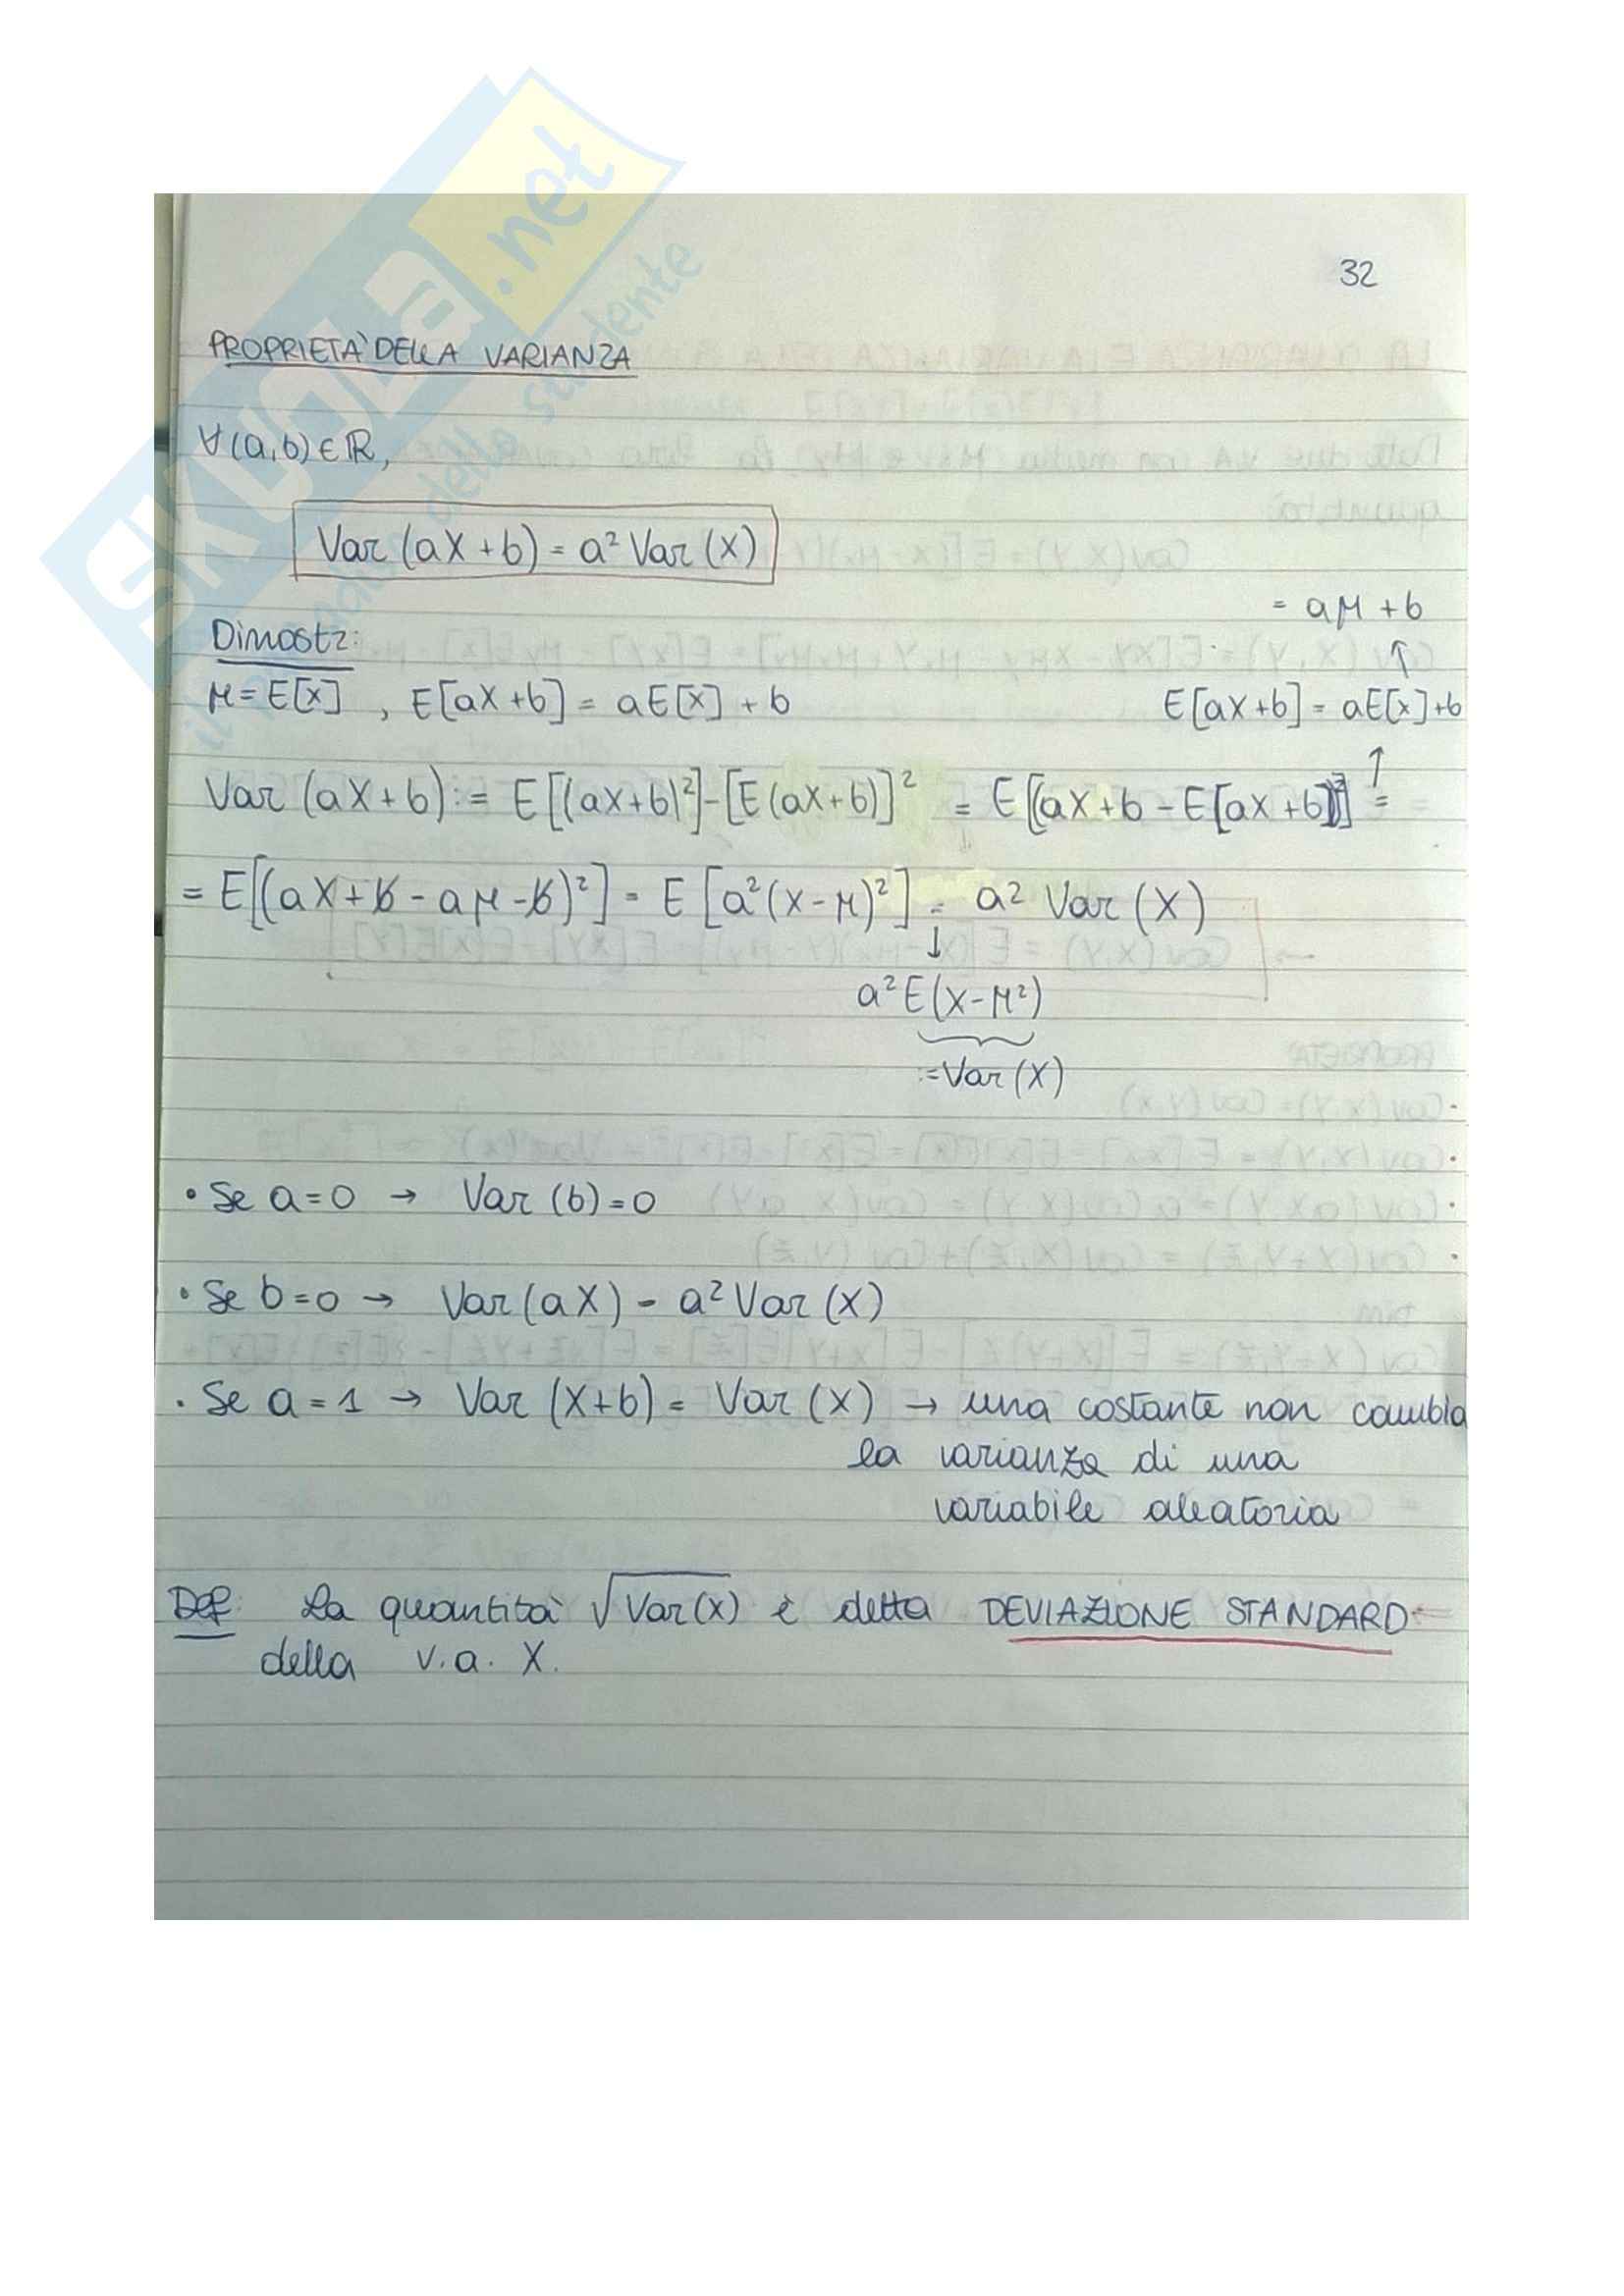 SKUOLA.net
il portale dello studente
32
PROPRIETA' DELLA VARIANZA
∀(a,b)∈ℝ,
Var (aX+b) = a² Var (X)
= aμ + b
Dimostr:
↑
μ=E[X] , E[aX+b] = aE[X] + b
E[aX+b] = aE[X]+b
↑
Var (aX+b) := E[(aX+b)²]-[E(aX+b)]² = E[(aX+b - E[aX+b])²] =
= E[(aX+b - aμ -b)²] = E [a²(X-μ)²] = a² Var (X)
↓
a²E(X-μ²)
:=Var (X)
• Se a=0 → Var (b)=0
• Se b=0 → Var(aX) = a² Var (X)
• Se a=1 → Var (X+b) = Var (X) → una costante non cambia
la varianza di una
variabile aleatoria
Def: La quantità √Var(X) è detta DEVIAZIONE STANDARD
della v.a. X.